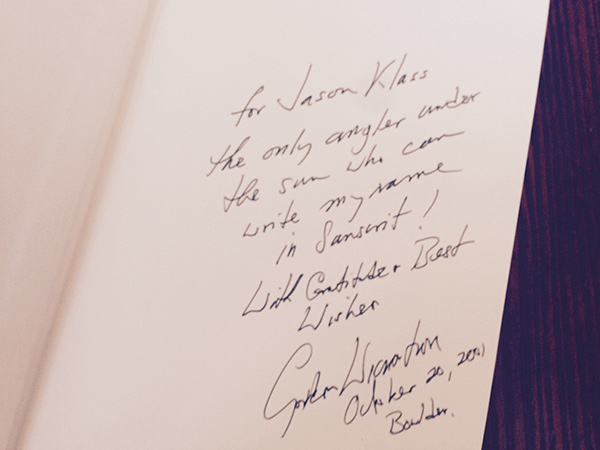 for Jason Klass
the only angler under
the sun who can
write my name
in Sanscrit!
With Gratitude + Best
Wishes
Gordon Wickstrom
October 20, 2001
Boulder.